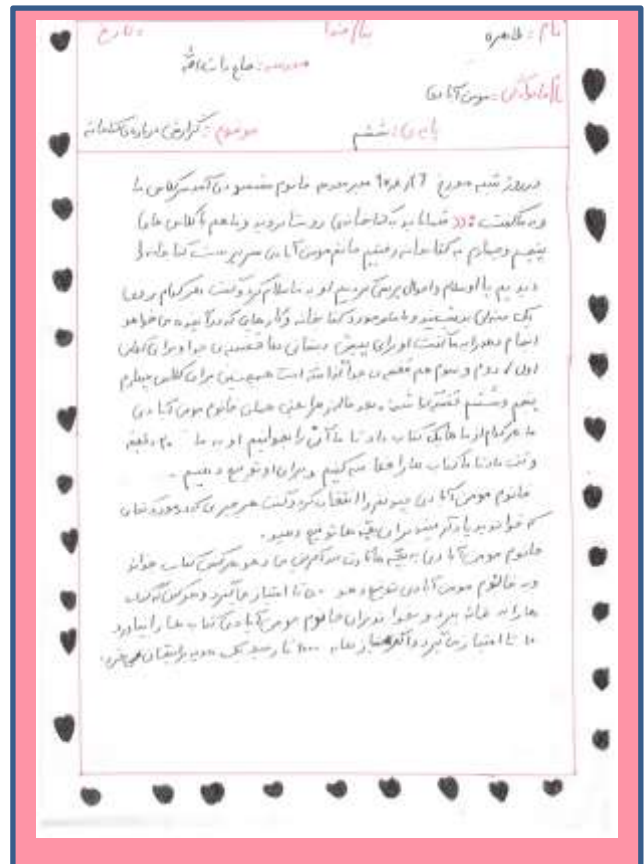 نام : طاهره بنام خدا تاریخ
مدرسه : حاج
نام خانوادگی : مومن آبادی
پایه ی : ششم موضوع : گزارش درباره ی کتابخانه
در روز شنبه مورخ مدیر مدرسه خانم آمد سر کلاس ما
و به ما گفت : (( شما باید به کتابخانه ی روستا بروید و ما هم با کلاس های
پنجم و چهارم به کتابخانه رفتیم خانم مومن آبادی سرپرست کتابخانه را
دیدیم با او سلام و احوال پرسی کردیم او به ما سلام کرد و گفت هر کدام بر روی
یک صندلی بنشینید و با ما در مورد کتابخانه و کار های که در آینده می خواهد
انجام دهد را به ما گفت او برای پیش دبستانی ها قفسه ی جدا و برای کلاس
اول ، دوم و سوم هم قفسه ی جدا گذاشته است همچنین برای کلاس چهارم
پنجم و ششم بعد خانم مومن آبادی
به هر کدام از ما یک کتاب داد تا ما آن را بخوانیم او به ما ۲۰ دقیقه
وقت داد تا ما کتاب ها را مطالعه کنیم و برای او توضیح دهیم .
خانوم مومن آبادی چند نفر را انتخاب کرد و گفت هر چیزی که در مورد کتابی
که خوانده اید یاد گرفتید برای بقیه ها توضیح دهید .
خانوم مومن آبادی به بچه ها کارت می دهد هر کس کتاب خواند
و به خانوم مومن آبادی توضیح دهد ۵۰ تا امتیاز می گیرد و هر کس که کتاب
ها را به خانه ببرد و بخواند برای خانوم مومن آبادی کتاب ها را بیاورد
۱۰ تا امتیاز می گیرد و اگر امتیاز ها به ۱۰۰۰ تا رسید یک هدیه برایشان می خرد .